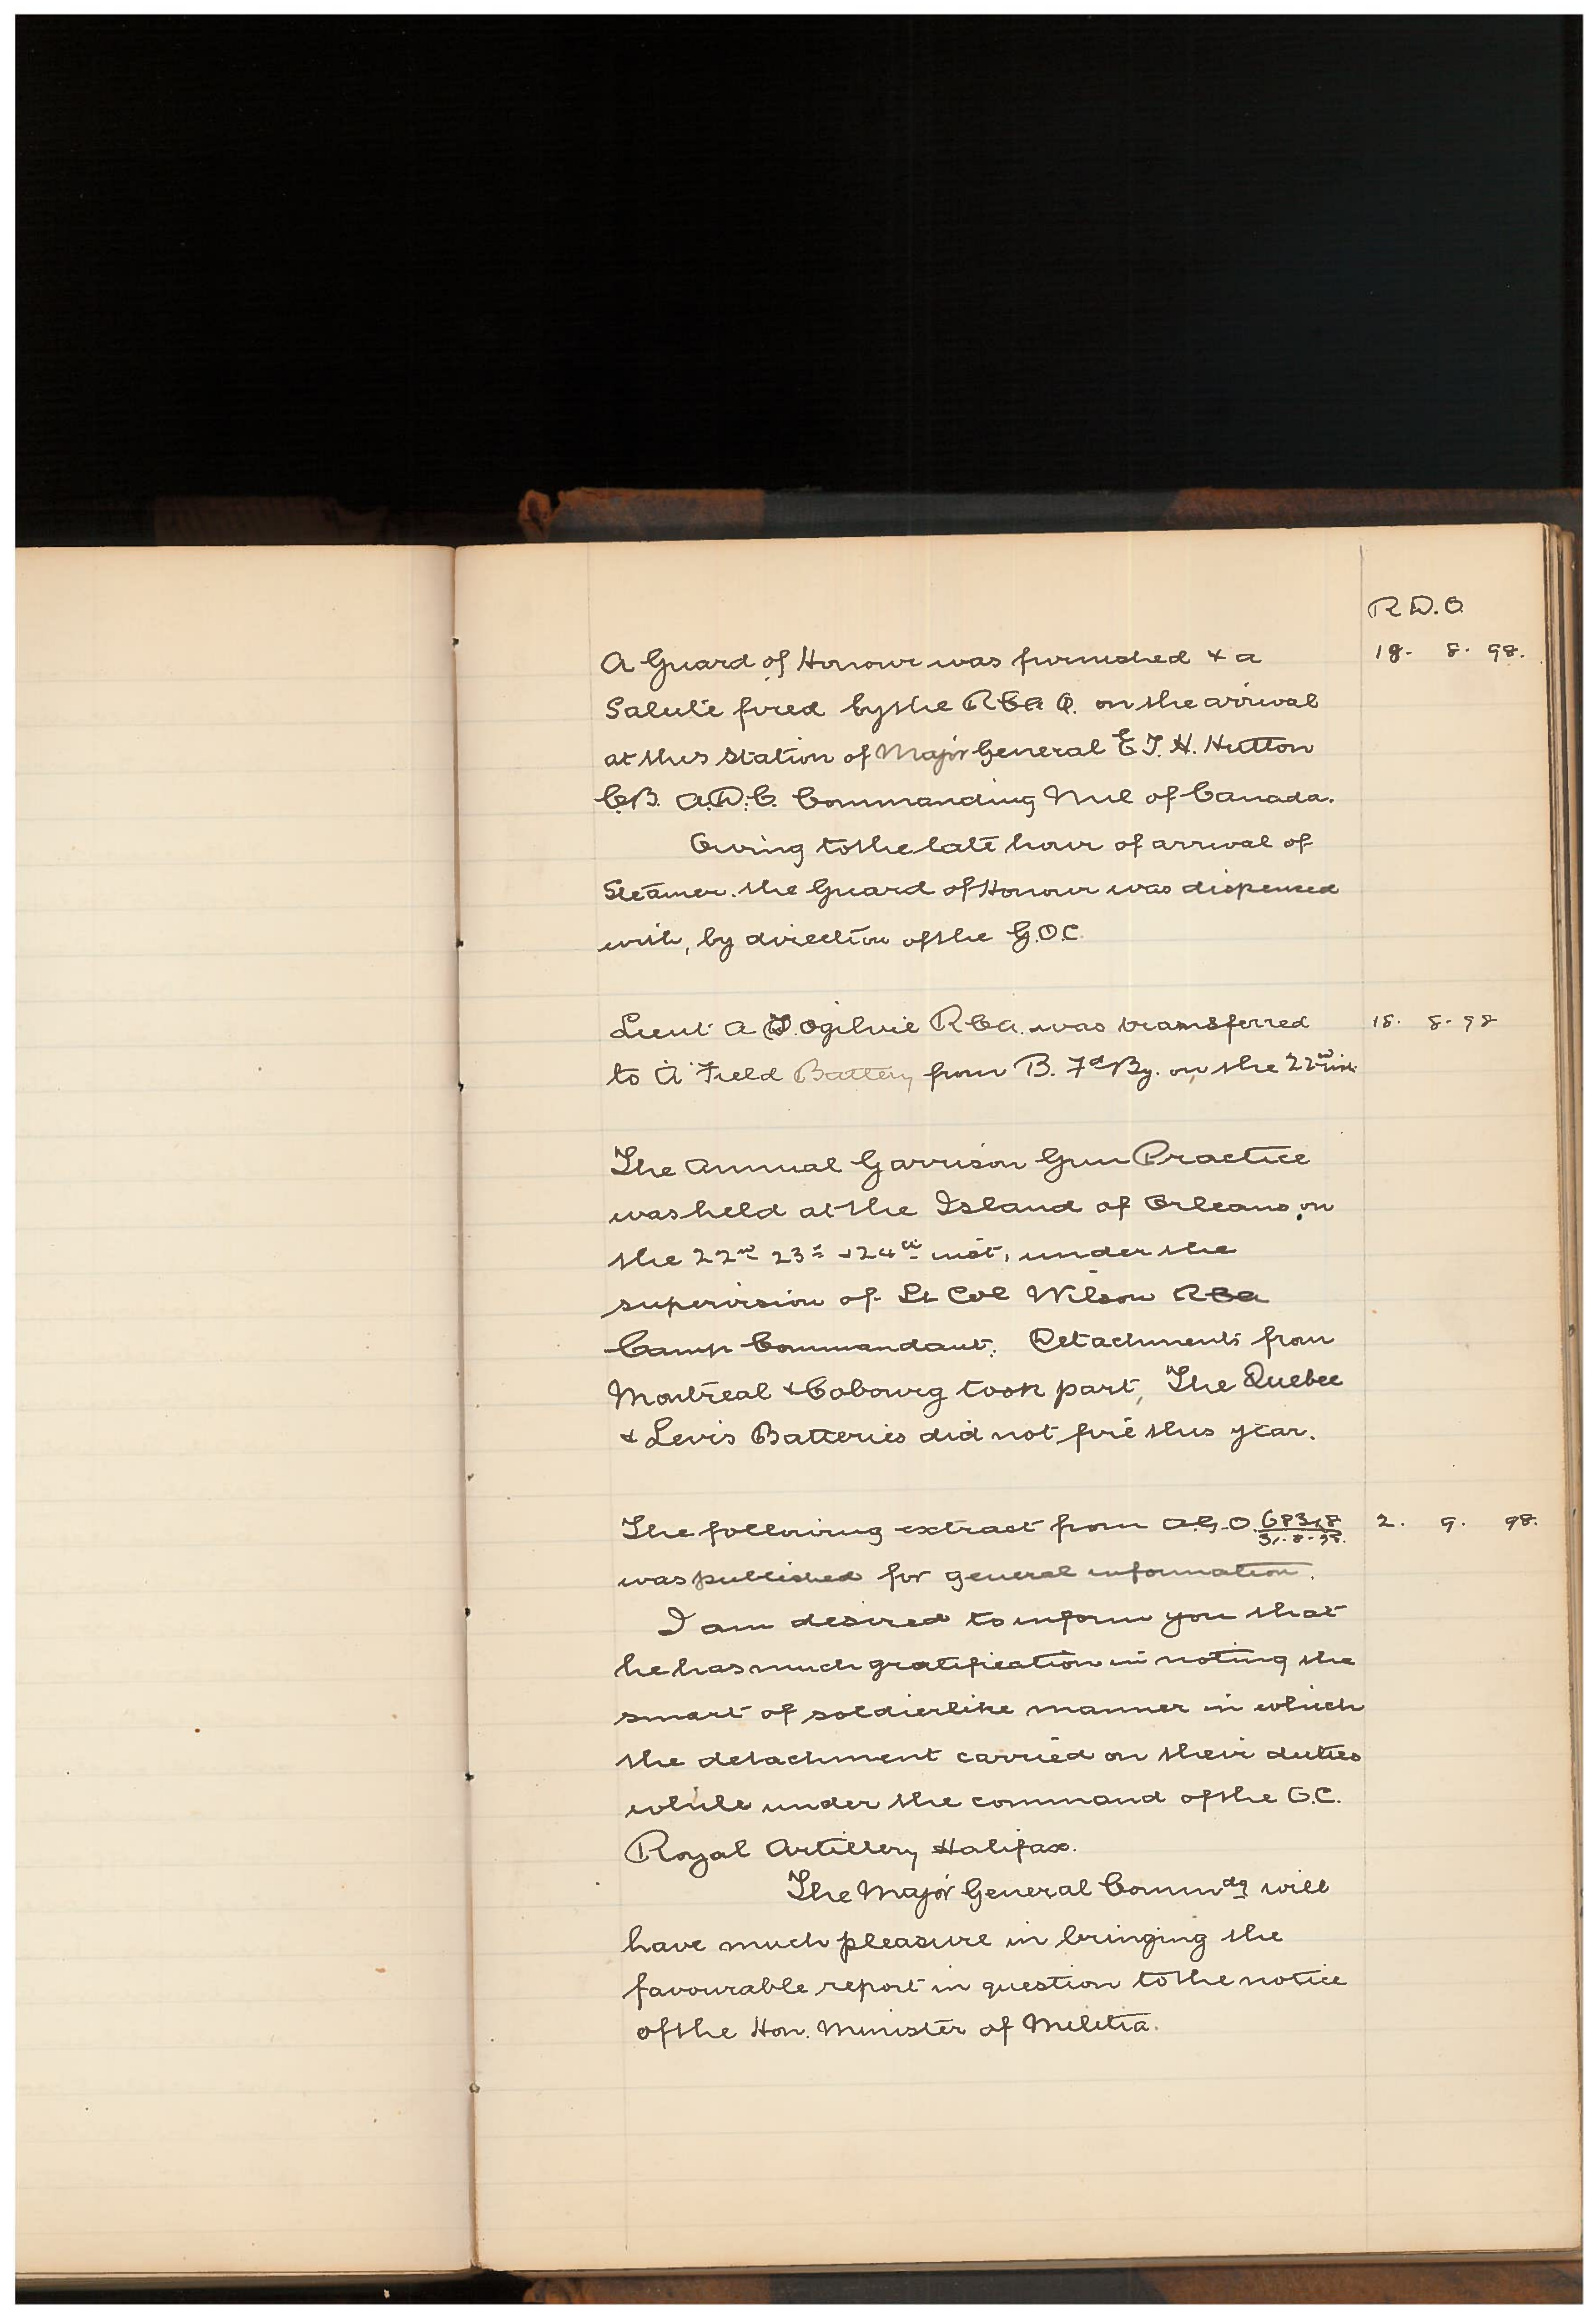 R.D.O.
A Guard of Honour was furnished & a 18. 8. 98.
Salute fired by the RCA Q. on the arrival
at this Station of Major General E T. H. Hutton
C.B. A.D.C. Commanding Mil of Canada.
Owing to the late hour of arrival of
Steamer. the Guard of Honour was dispensed
with, by direction of the G.O.C.
Lieut A T. Ogilvie RCA. was transferred 18. 8. 98
to A Field Battery from B. Fd By. on the 22nd inst.
The Annual Garrison Gun Practice
was held at the Island of Orleans, on
the 22nd 23rd & 24th inst, under the
supervision of Lt Col Wilson RCA
Camp Commandant. Detachments from
Montreal & Cobourg took part, The Quebec
& Levis Batteries did not fire this year.
The following extract from A.G.O. 68318 2. 9. 98.
31.8.98.
was published for general information.
I am desired to inform you that
he has much gratification in noting the
smart of soldierlike manner in which
the detachment carried on their duties
while under the command of the O.C.
Royal Artillery Halifax.
The Major General Commdg will
have much pleasure in bringing the
favourable report in question to the notice
of the Hon. Minister of Militia.